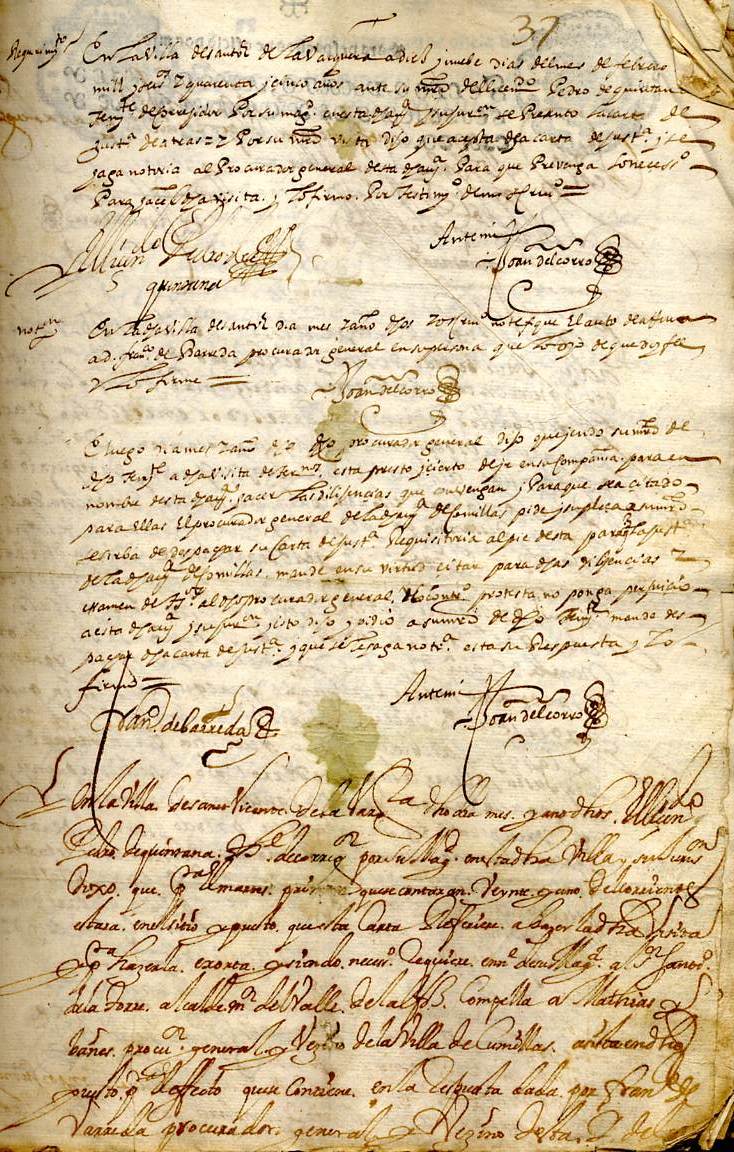 37
Requerimto
En la villa de sant Vte de la Varquera a diez y nuebe dias del mes de febrero
mill y seiss y quarenta y cinco años ante su md del licendo Pedro de quintana
tenyte de corregidor Por su magd. en esta dha va y su jurion se Presento la carta de
justa de atras y Por su md vista dijo que aceta dha carta de justa. y se
haga notoria al Procurador general desta dha va. Para que Prevenga lo necesso
Para hacer dha visita. y lo firmo. Por testimo. de mi escrivo =
Lizendo Pedro de
quintana
Ante mi
Joan del corro
noton
En la dha villa de sant Vte dia mes y año dhos yo escrivo notefique el auto de arriva
a d. franco de Barreda procurador general en su persona que lo oyo de que doy fee
y lo firme =
Joan del corro
E luego dia mes y año dho dho procurador general dijo que yendo su md del
dho tenyte a dha visita de terms. esta presto y cierto de ir en su compañia. para en
nombre desta dha va. hacer las dilijencias que convengan y Para que sea citado
para ellas El procurador general de la dha va de comillas pide y suplica a su md
se sirba de despachar su carta de justa Requisitoria al pie desta para que la justa
de la dha va de comillas. mande en su virtud citar para dhas diligencias y
examen de tos. al dho procurador general. y lo contro protesta no ponga perjuicio
a esta dha va y su jurion y esto dijo y pidio a su md de dho tenyte. mando des
pachar dha carta de justa. y que se le haga nota. esta su Respuesta y lo
firmo =
Ante mi
Joan del corro
Fran. de barreda
En la villa. de san Vicente. de la Varqra a dho dia mes. y año dhos. El lizendo
Pedro. de quintana. The. de correqor por su Magd. en esta dha Villa y su jurision
Dixo. que. pa el martes. primero que se contaran. Veinte y uno. del corriente
estara. en el sitio y puesto. que esta Carta Refiere. a hazer la dha Visita
y pa hazerla. exorta. y siendo. necero. Requiere. en ne de su Magd. al Sr Santos.
de la torre. alcalde mr del Valle. de alfoz. Compella a Mathias y
bañes. procur. general. y Vezino de la Villa de Cumillas. asista en dho
puesto. pa el effecto que se Contiene. en la Respuesta dada. por fran. de
Varreda procurador. general y Vezino desta. Va de